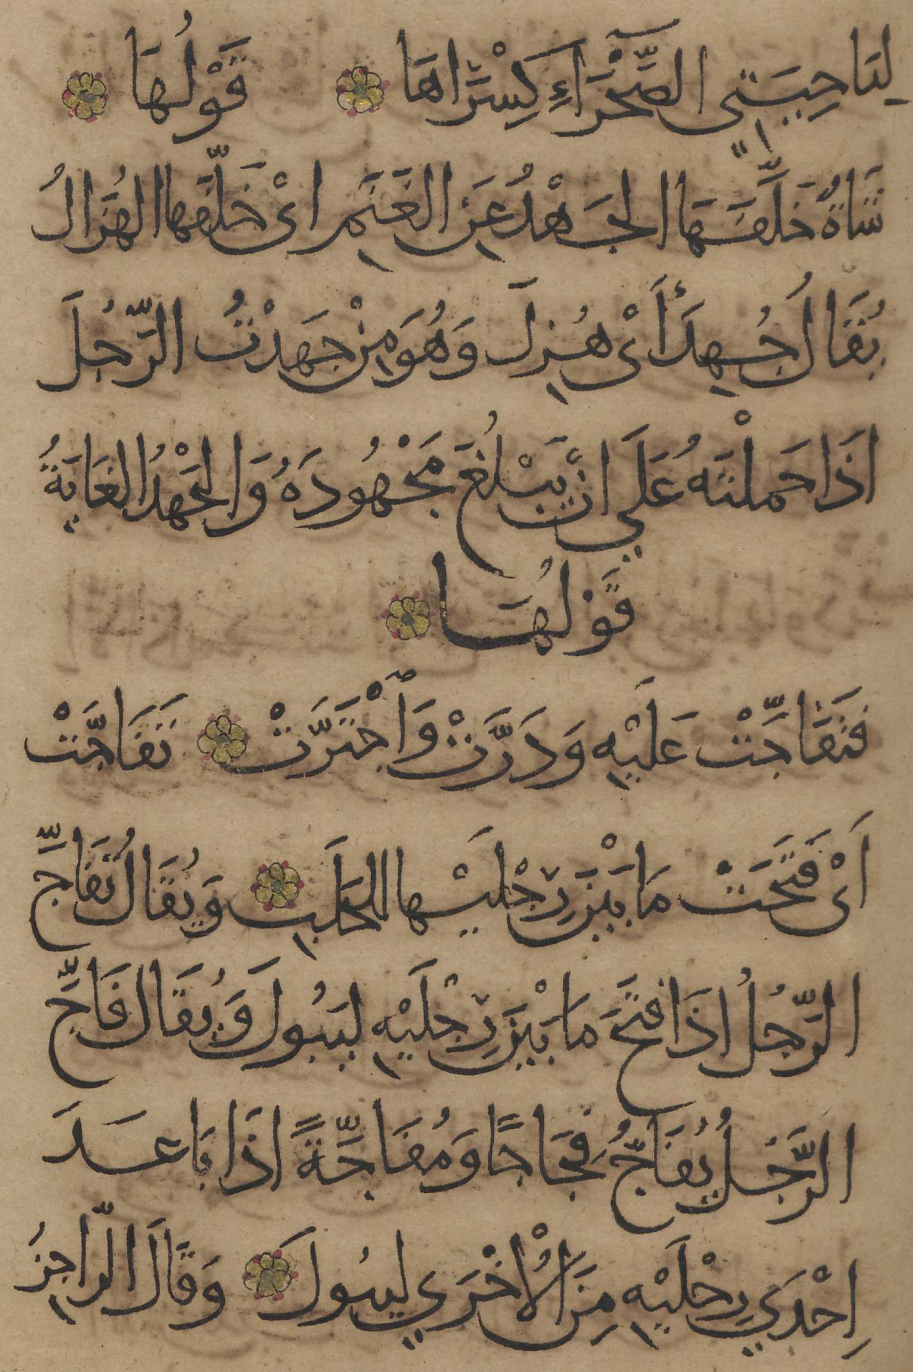 لِنَاحِيَتَيِ الصَّحْرَاءِ كِسْرَاهَا قَوْلُهَا
شَاةٌ خَلَّفَهَا الجَهْدُ عَنِ الغَنَمِ اىْ خَلَّفَهَا الهُزَالُ
يُقَالُ جُهِدَ أَىْ هُزِلَ وَهُوَ مِنْ جَهَدْتُ الرَّجُلَ
اذَا حَملْتَهُ عَلَي انْ يَبْلُغَ مَجْهُودَهُ وَالجَهْدُ الغَايَةُ
قَوْلُهَا
فَتَفَاجَّتْ عَلَيْهِ وَدَرَّتْ وَاْجْتَرَّتْ تَفَاجَّتْ
أَىْ فَتَحَتْ مَا بَيْنَ رِجْلَيْها للحَلَبِ وَيُقَالُ تَفَاجَّ
الرَّجُلُ اذَا فتَحَ مَا بَيْنَ رِجْلَيْهِ لِيَبُولَ وَيُقَالُ فَاجَّ
الرَّجُلُ يُفَاجُّ فِجَاجًا وَمُفَاجَّةً اذَا بَاعَدَ
اِحْدَي رِجْلَيْهِ مِنَ الْاُخْرَي لِيبُولَ وَقَالَ الرَّاجِزُ